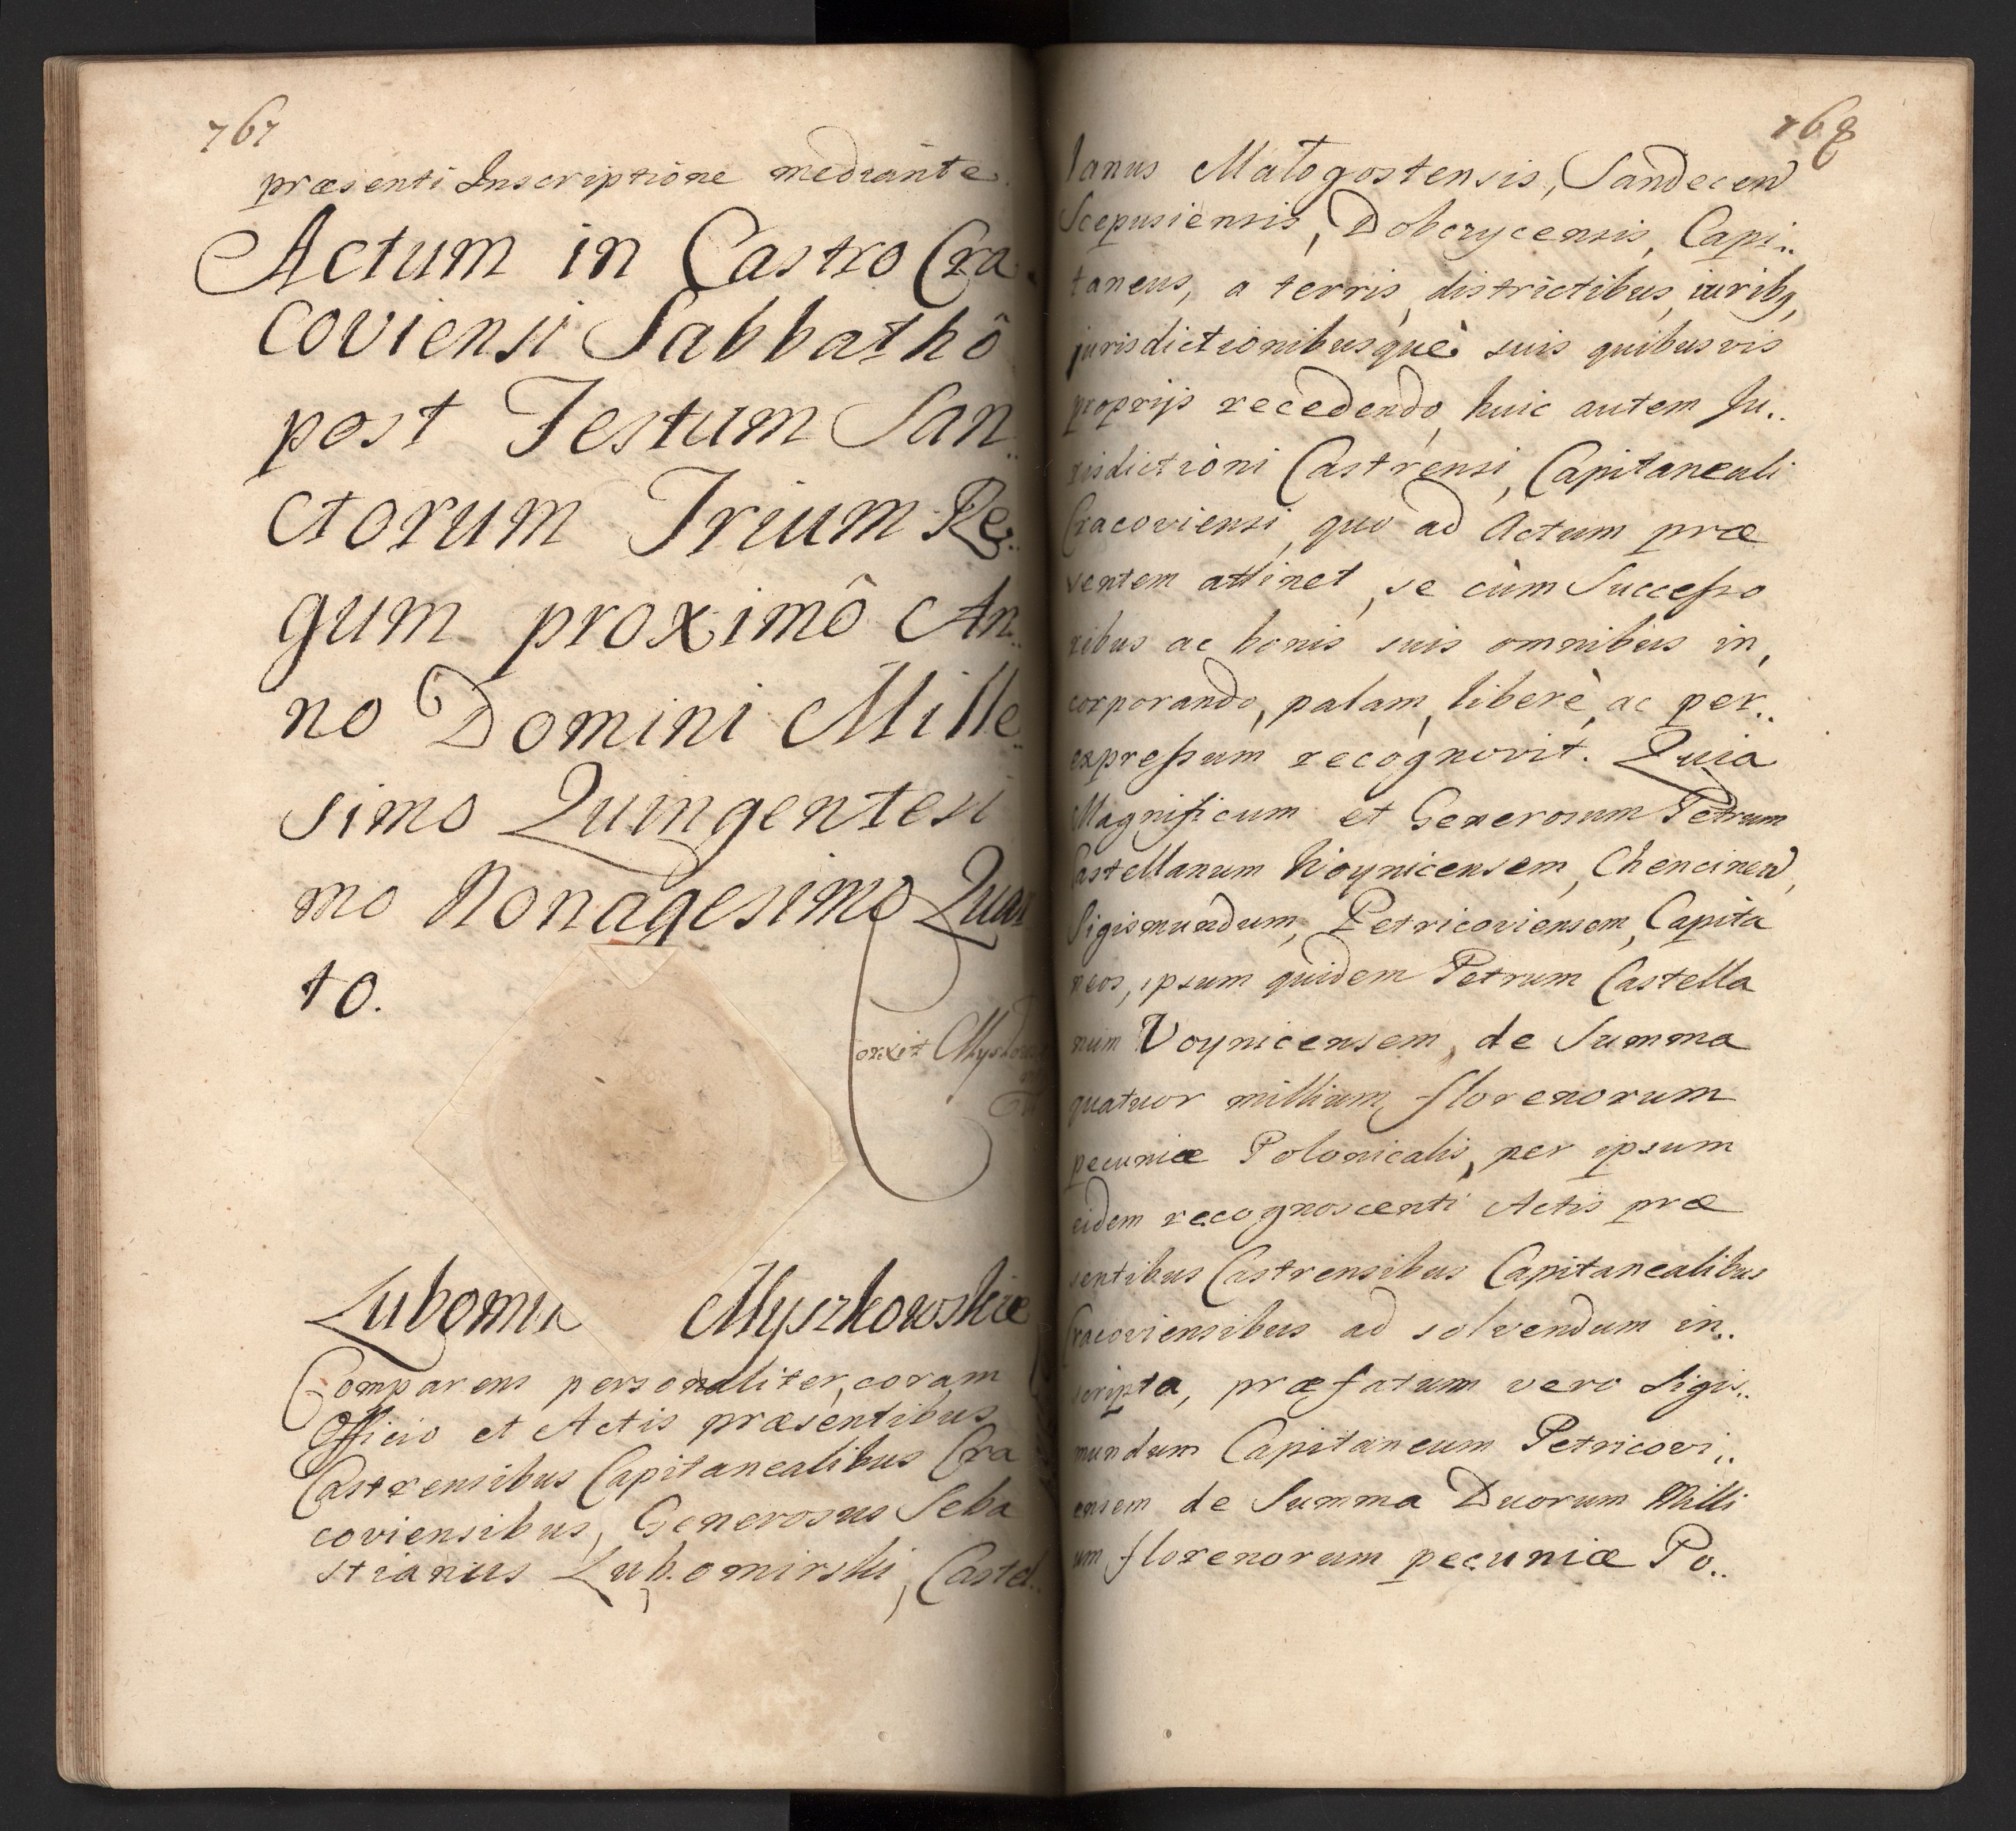 767
præsenti Inscriptione mediante.
Actum in Castro Cra
coviensi Sabbathô
post Festum San..
ctorum Trium Re..
gum proximô An..
no Domini Mille..
simo Quingentesi
mo Nonagesimo Quar
to.
Lubomir Myszkowskie
Comparens personaliter, coram
Officio et Actis præsentibus
Castrensibus Capitanealibus Cra
coviensibus, Generosus Seba
stianus Lubomirski, Castel..
768
lanus Małogostensis, Sandecen
Scepusiensis, Dobczycensis, Capi..
taneus, a terris, districtibus, iuribq,
jurisdictionibusquè suis quibusvis
proprijs recedendo, huic autem Ju..
risdictioni Castrensi, Capitaneali
Cracoviensi, quo ad Actum præ
sentem attinet, se cùm Successo
ribus ac bonis suis omnibus in,
corporando, palam, liberè, ac per..
expressum recognovit. Quia
Magnificum et Generosum Petrum
Castellanum Woynicensem, Chencinen,
Sigismundum, Petricoviensem, Capita
neos, ipsum quidem Petrum Castella
num Voynicensem, de Summa
quatuor millium florenorum
pecuniæ Polonicalis, per ipsum
eidem recognoscenti Actis præ
sentibus Castrensibus Capitanealibus
Cracoviensibus ad solvendum in..
scripta, præfatum vero Sigis..
mundum Capitaneum Petricovi..
ensem de Summa Duorum Milli
um florenorum pecuniæ Po..